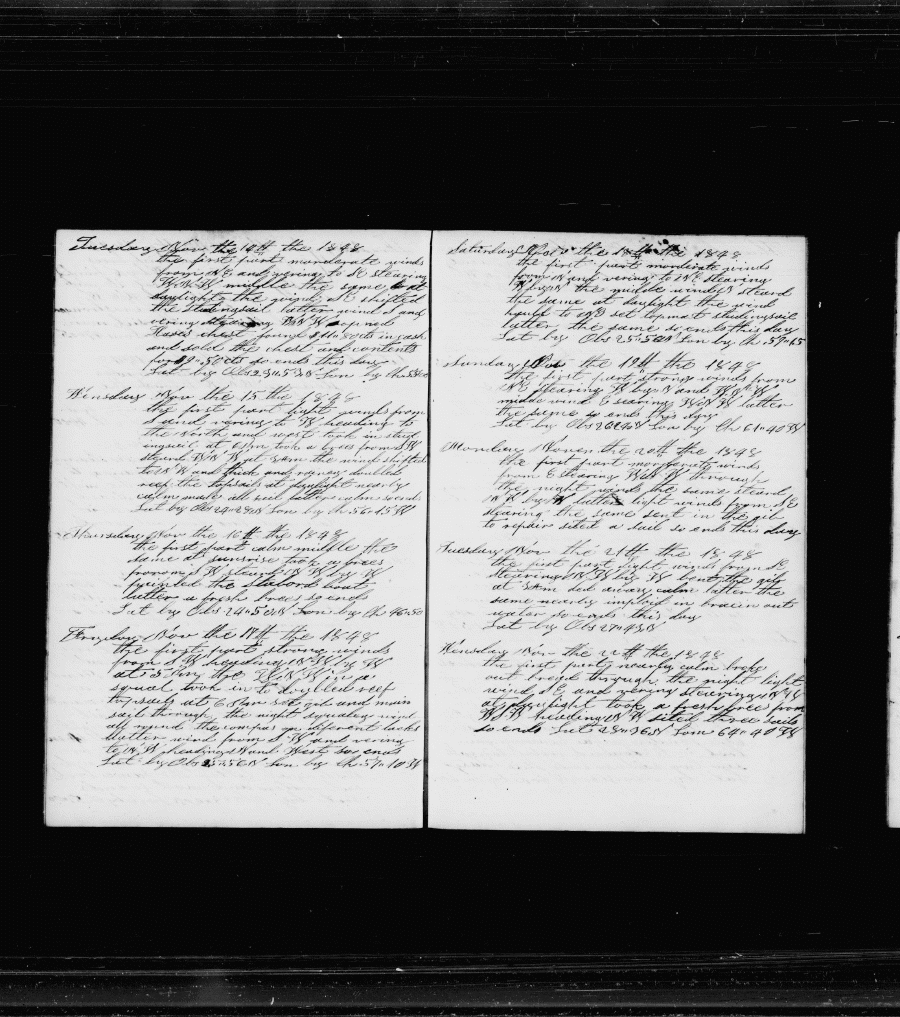 Tuesday Nov the 14th the 1848
the first part moderate winds
from NE and vering to SE stearing
WNW middle the same to at
daylight the wind SE shifted
the studingsail latter wind S and
vering stearing WNW opened
chest found in cash
and sold the chest and contents
for so ends this day
Lat by Obs Lon by Ch
Winsday Nov the 15 the 1848
the first part light winds from
S and vering to W heading to
the North and west took in stud
ingsail at took a brees from SW
steard WNW at 3Am the wind shifted
to NW and thick and rainey doubled
reef the topsails at daylight nearly
calm made all sail latter calm so ends
Lat by Obs 24=28N Lon by Ch 56=15W
Thursday Nov the 16th the 1848
the first part calm middle the
same at sunrise took a brees
from SW steard NW by W
painted the stabord boat
latter a fresh brees so ends
Lat by Obs 24=50N Lon by Ch
Fryday Nov the 17th the 1848
the first part strong winds
from SW heading NW by W
at in a
squal took in to doublled reef
topsails at gib and main
sail through the night squaley wind
all round the compas on diferent tacks
latter wind from SW and vering
to NW heading N and West so ends
Lat by Obs Lon by Ch 57=10W
Saturday Nov the 18th the 1848
the first part morderate winds
from N and vering to NE stearing
W by N the middle wind E steard
the same at daylight the wind
to set topmast studingsail
latter the same so ends this day
Lat by Obs 25=50N Lon by Ch 59=
Sunday Nov the 19th the 1848
the first part strong winds from
NE stearing W by N and WNW
midde wind E stearing WNW latter
the same so ends this day
Lat by Obs Lon by Ch 61=40W
Monday November the 20th the 1848
the first part morderate winds
from E stearing WNW through
the night winds the same steard
NW by W latter light winds from SE
stearing the same sent in the gib
to repair sited a sail so ends this day
Tuesday Nov the 21th the 1848
the first part light winds from SE
stearing NW by W bent the gib
at died away calm latter the
same nearly imployd in out
water so ends this day
Lat by Obs 27=43N
Winsday Nov the 22th the 1848
the first part nearly calm broke
out bread through the night light
wind SE and vering stearing
at daylight took a fresh brees from
heading NW sited three sails
so ends Lat 28=36N Lon 64=40W